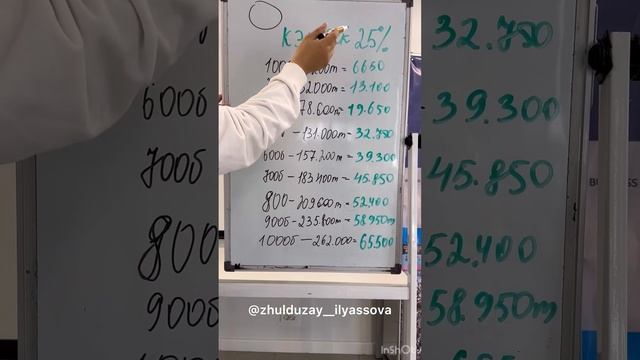 25%
= 6650
= 13.100
78.600т = 19.650
- 131.000т = 32.750
600б - 157.200т = 39.300
700б - 183.400т = 45.850
800 - 209600т = 52.400
900б - 235.800т = 58.950т
1000б - 262.000 = 65.500
@zhulduzay__ilyassova
InShO
600б
700б
800
900б
32.750
39.300
45.850
52.400
58.950т